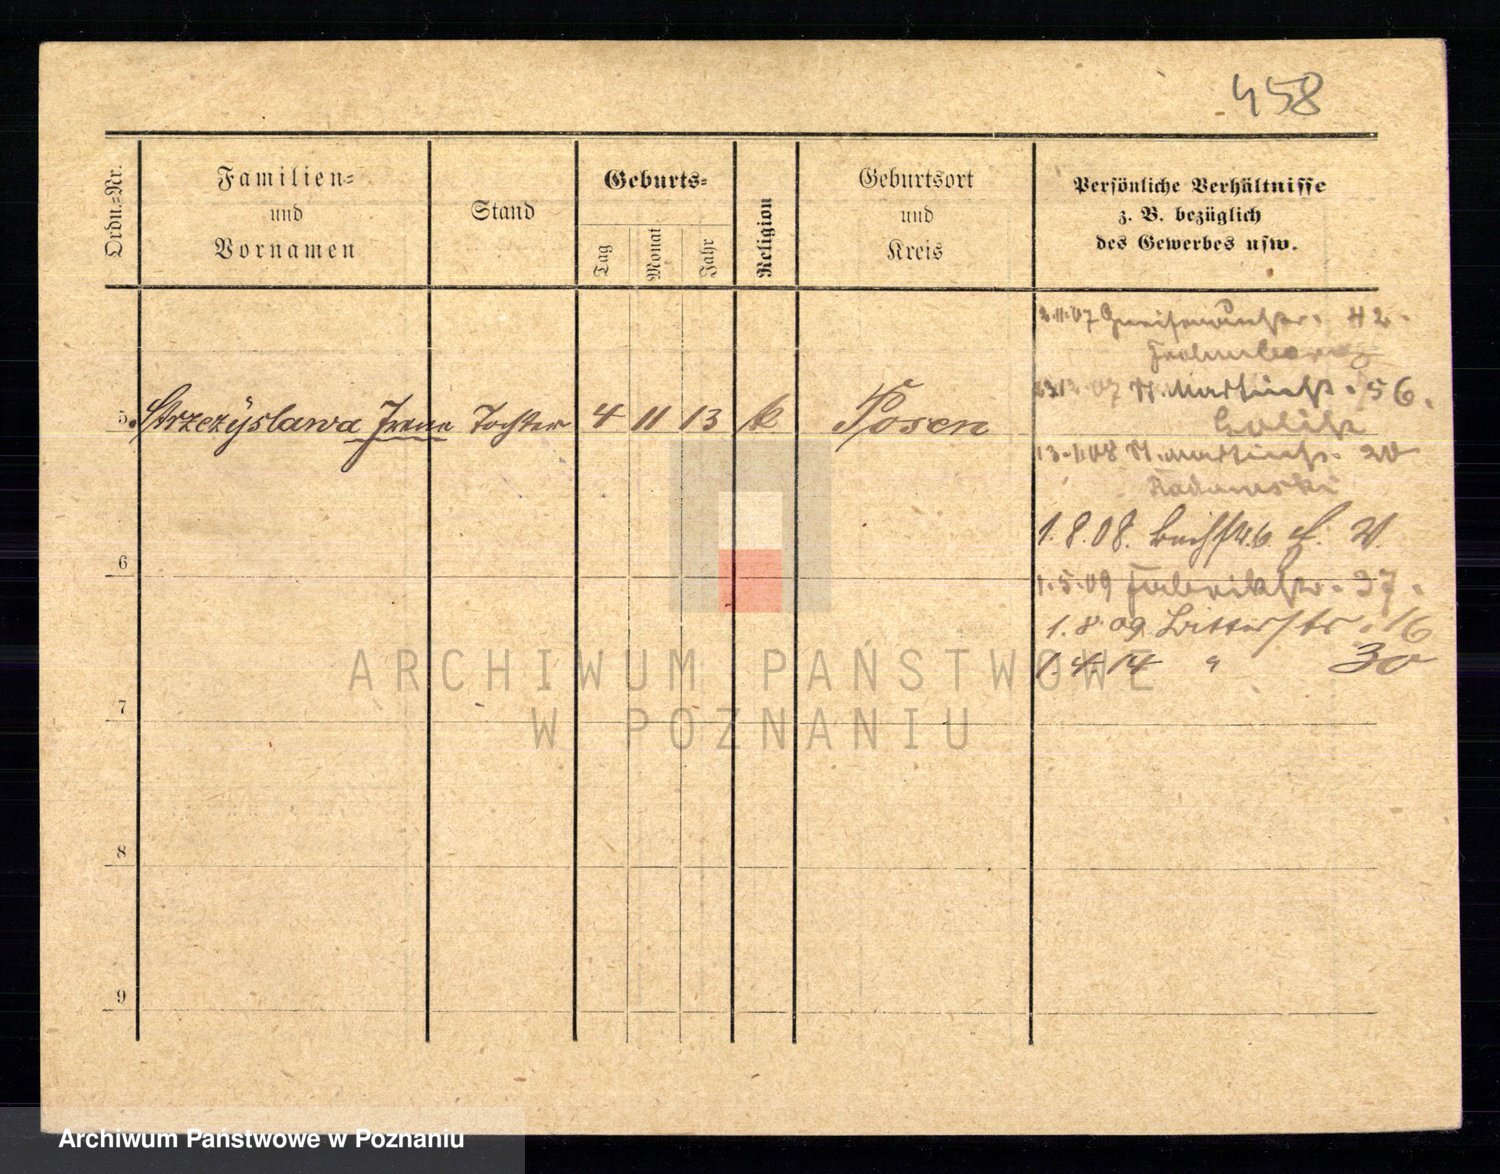 458
Ordn.-Nr.
Familien-
und
Vornamen
Stand
Geburts-
Tag
Monat
Jahr
Religion
Geburtsort
und
Kreis
Persönliche Verhältnisse
z. B. bezüglich
des Gewerbes usw.
2.11.07 42.
13.12.07 St. Martinstr. 56.
5. Strzezÿslawa Irene Tochter 4 11 13 k Posen
13.1.08 St. Martinstr. 20
Radomski
1.8.08.
6
1.5.09 Fabrikstr. 37.
1.8.09 Bitterstr. 16
1.4.14 " 30
7
8
9
ARCHIWUM PAŃSTWOWE
W POZNANIU
Archiwum Państwowe w Poznaniu